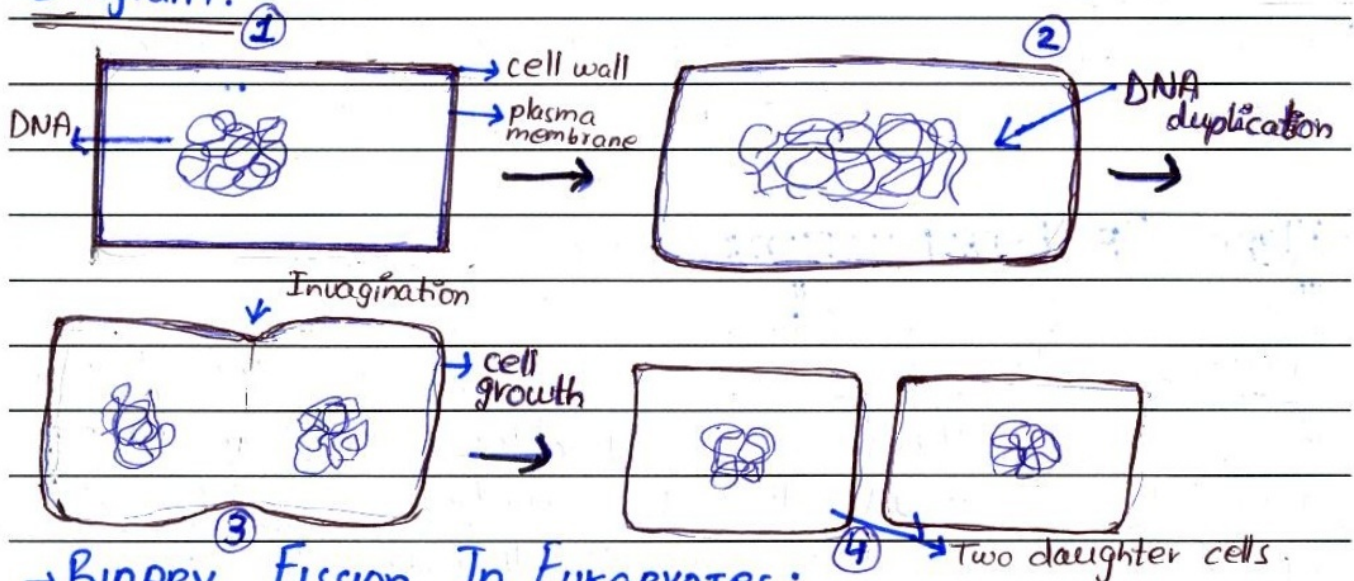 Diagram:
①
②
cell wall
DNA
plasma
membrane
DNA
duplication
Invagination
cell
growth
③
④
Two daughter cells.
→ Binary Fission In Eukaryotes: